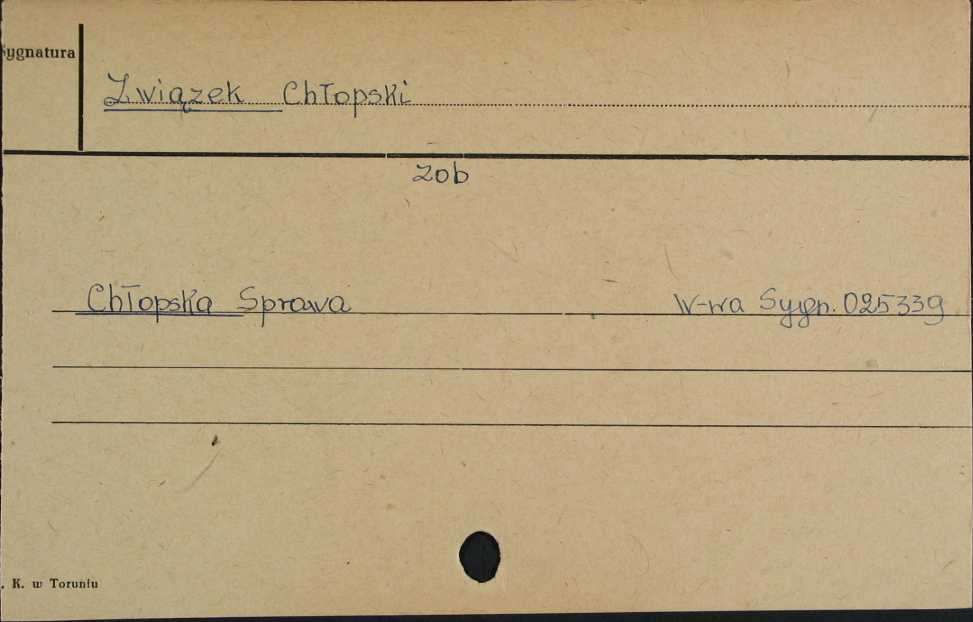 Sygnatura
Związek Chłopski
zob
Chłopska Sprawa W-wa Sygn. 025339
. K. w Toruniu